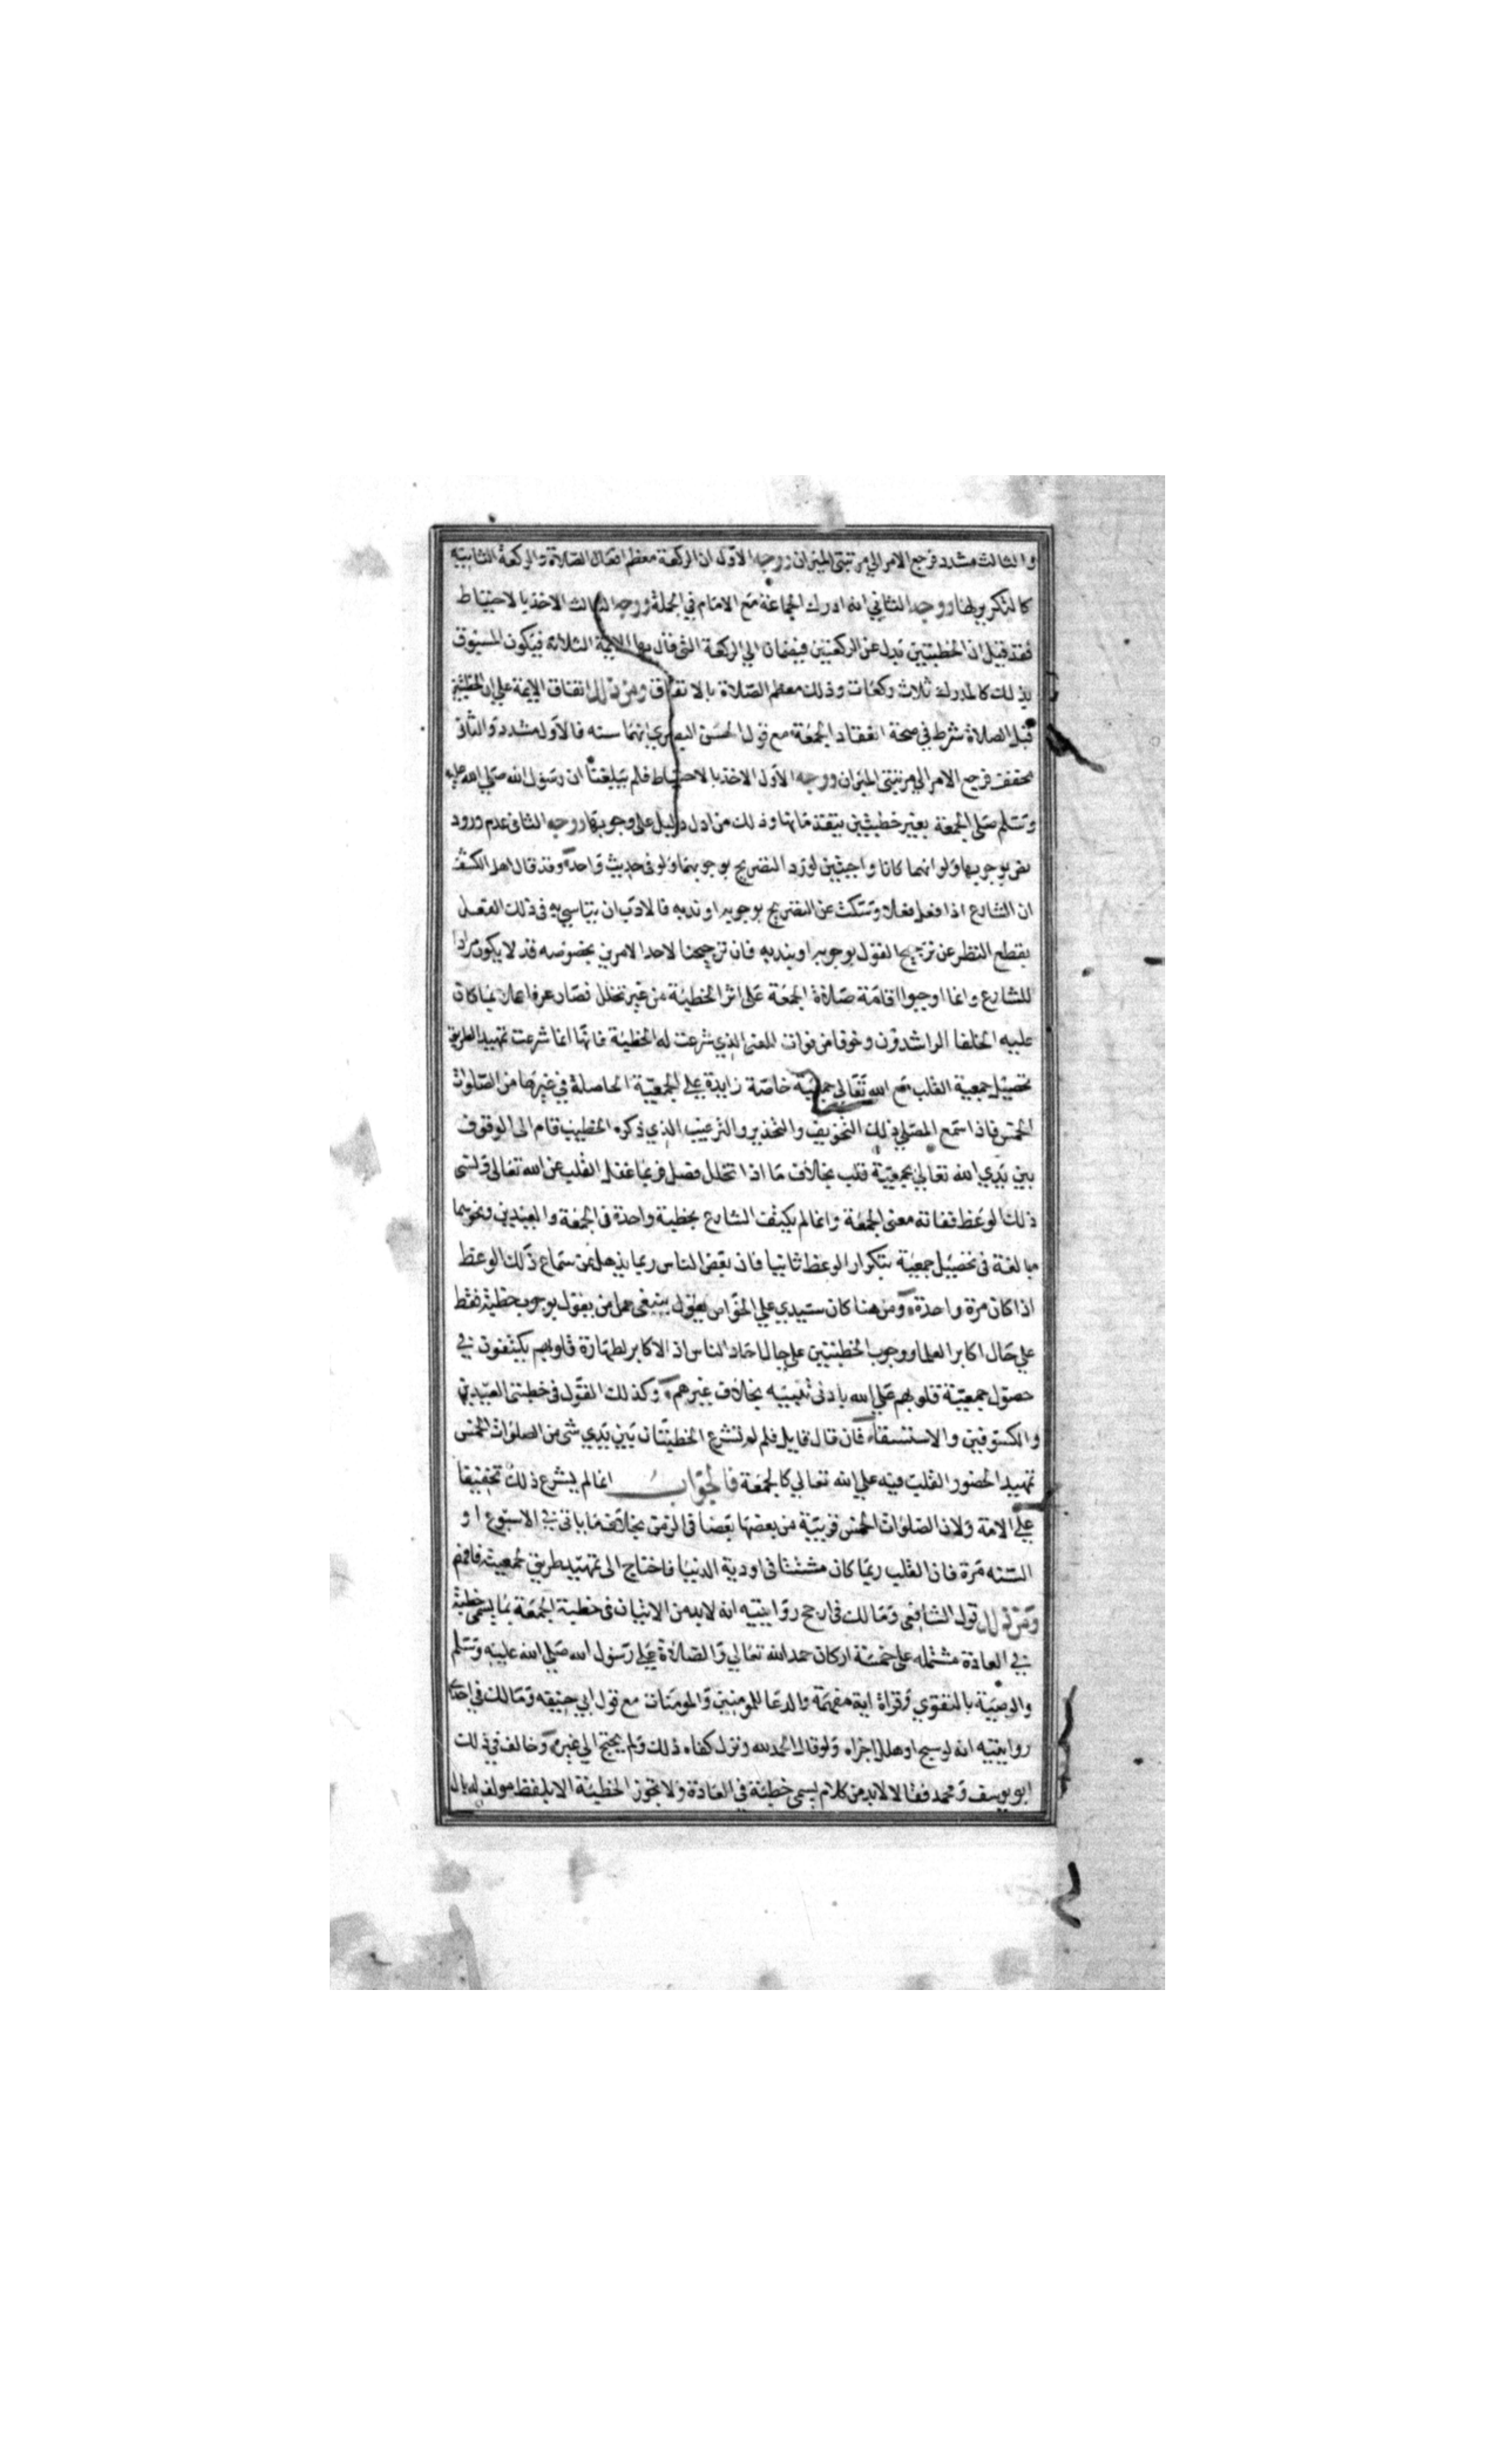 والثالث مشدد فرجع الامر الي مرتبتي الميزان ووجه الاول ان الركعة معظم افعال الصلاة والركعة الثانية
كالتكرير لها ووجه الثاني انه ادرك الجماعة مع الامام في الجملة ووجه الثالث الاخذ بالاحتياط
فقد قيل ان الخطبتين بدل عن الركعتين فيضمان الي الركعة التي قال بها الايمة الثلاثة فيكون المسبوق
بذلك كالمدرك ثلاث ركعات وذلك معظم الصلاة بالاتفاق ومن ذلك اتفاق الايمة علي ان الخطبتين
قبل الصلاة شرط في صحة انعقاد الجمعة مع قول الحسن البصري انهما سنه فالاول مشدد والثاني
مخفف فرجع الامر الي مرتبتي الميزان ووجه الاول الاخذ بالاحتياط فلم يبلغنا ان رسول الله صلي الله عليه
وسلم صلي الجمعة بغير خطبتين يتقدمانها وذلك من ادل دليل علي وجوبهما ووجه الثاني عدم ورود
نص بوجوبهما ولو انهما كانا واجبتين لورد التصريح بوجوبهما ولو في حديث واحد وقد قال اهل الكشف
ان الشارع اذا فعل فعلا وسكت عن التصريح بوجوبه او ندبه فالادب ان يتاسي به في ذلك الفعل
بقطع النظر عن ترجيح القول بوجوبه او بندبه فان ترجيحنا لاحد الامرين بخصوصه قد لا يكون مرادا
للشارع وانما اوجبوا اقامة صلاة الجمعة علي اثر الخطبة من غير تخلل فصل عرفا عملا بما كان
عليه الخلفا الراشدون وخوفا من فوات المعني الذي شرعت له الخطبة فانها انما شرعت تمهيدا لطريق
تحصيل جمعية القلب مع الله تعالي جمعية خاصة زايدة علي الجمعية الحاصلة في غيرها من الصلوات
الخمس فاذا استمع المصلي ذلك التخويف والتحذير والترغيب الذي ذكره الخطيب قام الي الوقوف
بين يدي الله تعالي بجمعية قلب بخلاف ما اذا تخلل فصل فربما غفل القلب عن الله تعالي ونسي
ذلك الوعظ ففاته معني الجمعة وانما لم يكتف الشارع بخطبة واحدة في الجمعة والعيدين ونحوهما
مبالغة في تحصيل جمعية بتكرار الوعظ ثانيا فان بعض الناس ربما يذهل عن سماع ذلك الوعظ
اذا كان مرة واحدة ومن هنا كان سيدي علي الخواص يقول ينبغي حمل من يقول بوجوب خطبة فقط
علي حال اكابر العلما ووجوب الخطبتين علي حال احاد الناس اذ الاكابر لطهارة قلوبهم يكتفون في
حصول جمعية قلوبهم علي الله بادني تنبيه بخلاف غيرهم وكذلك القول في خطبتي العيدين
والكسوفين والاستسقاء فان قال قايل فلم لم تشرع الخطبتان بين يدي شي من الصلوات الخمس
تمهيدا لحضور القلب فيه علي الله تعالي كالجمعة فالجواب انما لم يشرع ذلك تخفيفا
علي الامة ولان الصلوات الخمس قريبة من بعضها بعضا في الزمن بخلاف ما ياتي في الاسبوع او
السنه مرة فان القلب ربما كان مشتتا في اودية الدنيا فاحتاج الي تمهيد طريق لجمعيته فافهم
ومن ذلك قول الشافعي ومالك في ارجح روايتيه انه لابد من الاتيان في خطبة الجمعة بما يسمي خطبة
في العادة مشتمله علي خمسة اركان حمد الله تعالي والصلاة علي رسول الله صلي الله عليه وسلم
والوصية بالتقوي وقراة اية مفهمة والدعا للمومنين والمومنات مع قول ابي حنيفه ومالك في احدي
روايتيه انه لو سبح او هلل اجزاه ولو قال الحمد لله ونزل كفاه ذلك ولم يحتج الي غيره وخالف في ذلك
ابو يوسف ومحمد فقالا لابد من كلام يسمي خطبة في العادة ولا تجوز الخطبة الا بلفظ مولف له بال